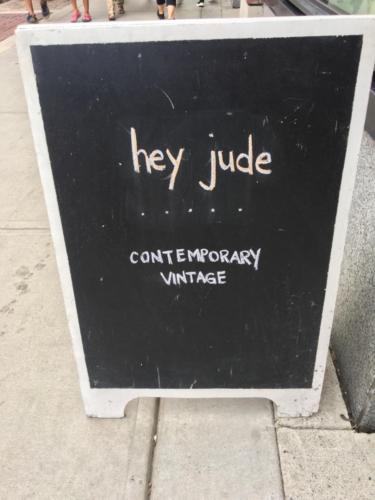 hey jude
. . . . .
CONTEMPORARY
VINTAGE